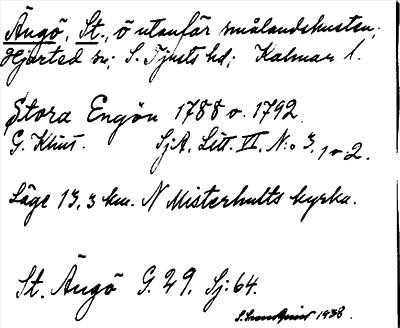 Ängö, St., ö utanför smålandskusten;
Hjorted sn; S. Tjusts hd; Kalmar l.
Stora Engön 1788 o. 1792.
G. Klint. SjA. Litt. II. N:o 3, 1 o. 2.
Läge 13,3 km. N Misterhults kyrka.
St. Ängö G. 29. Sj: 64.
1938.